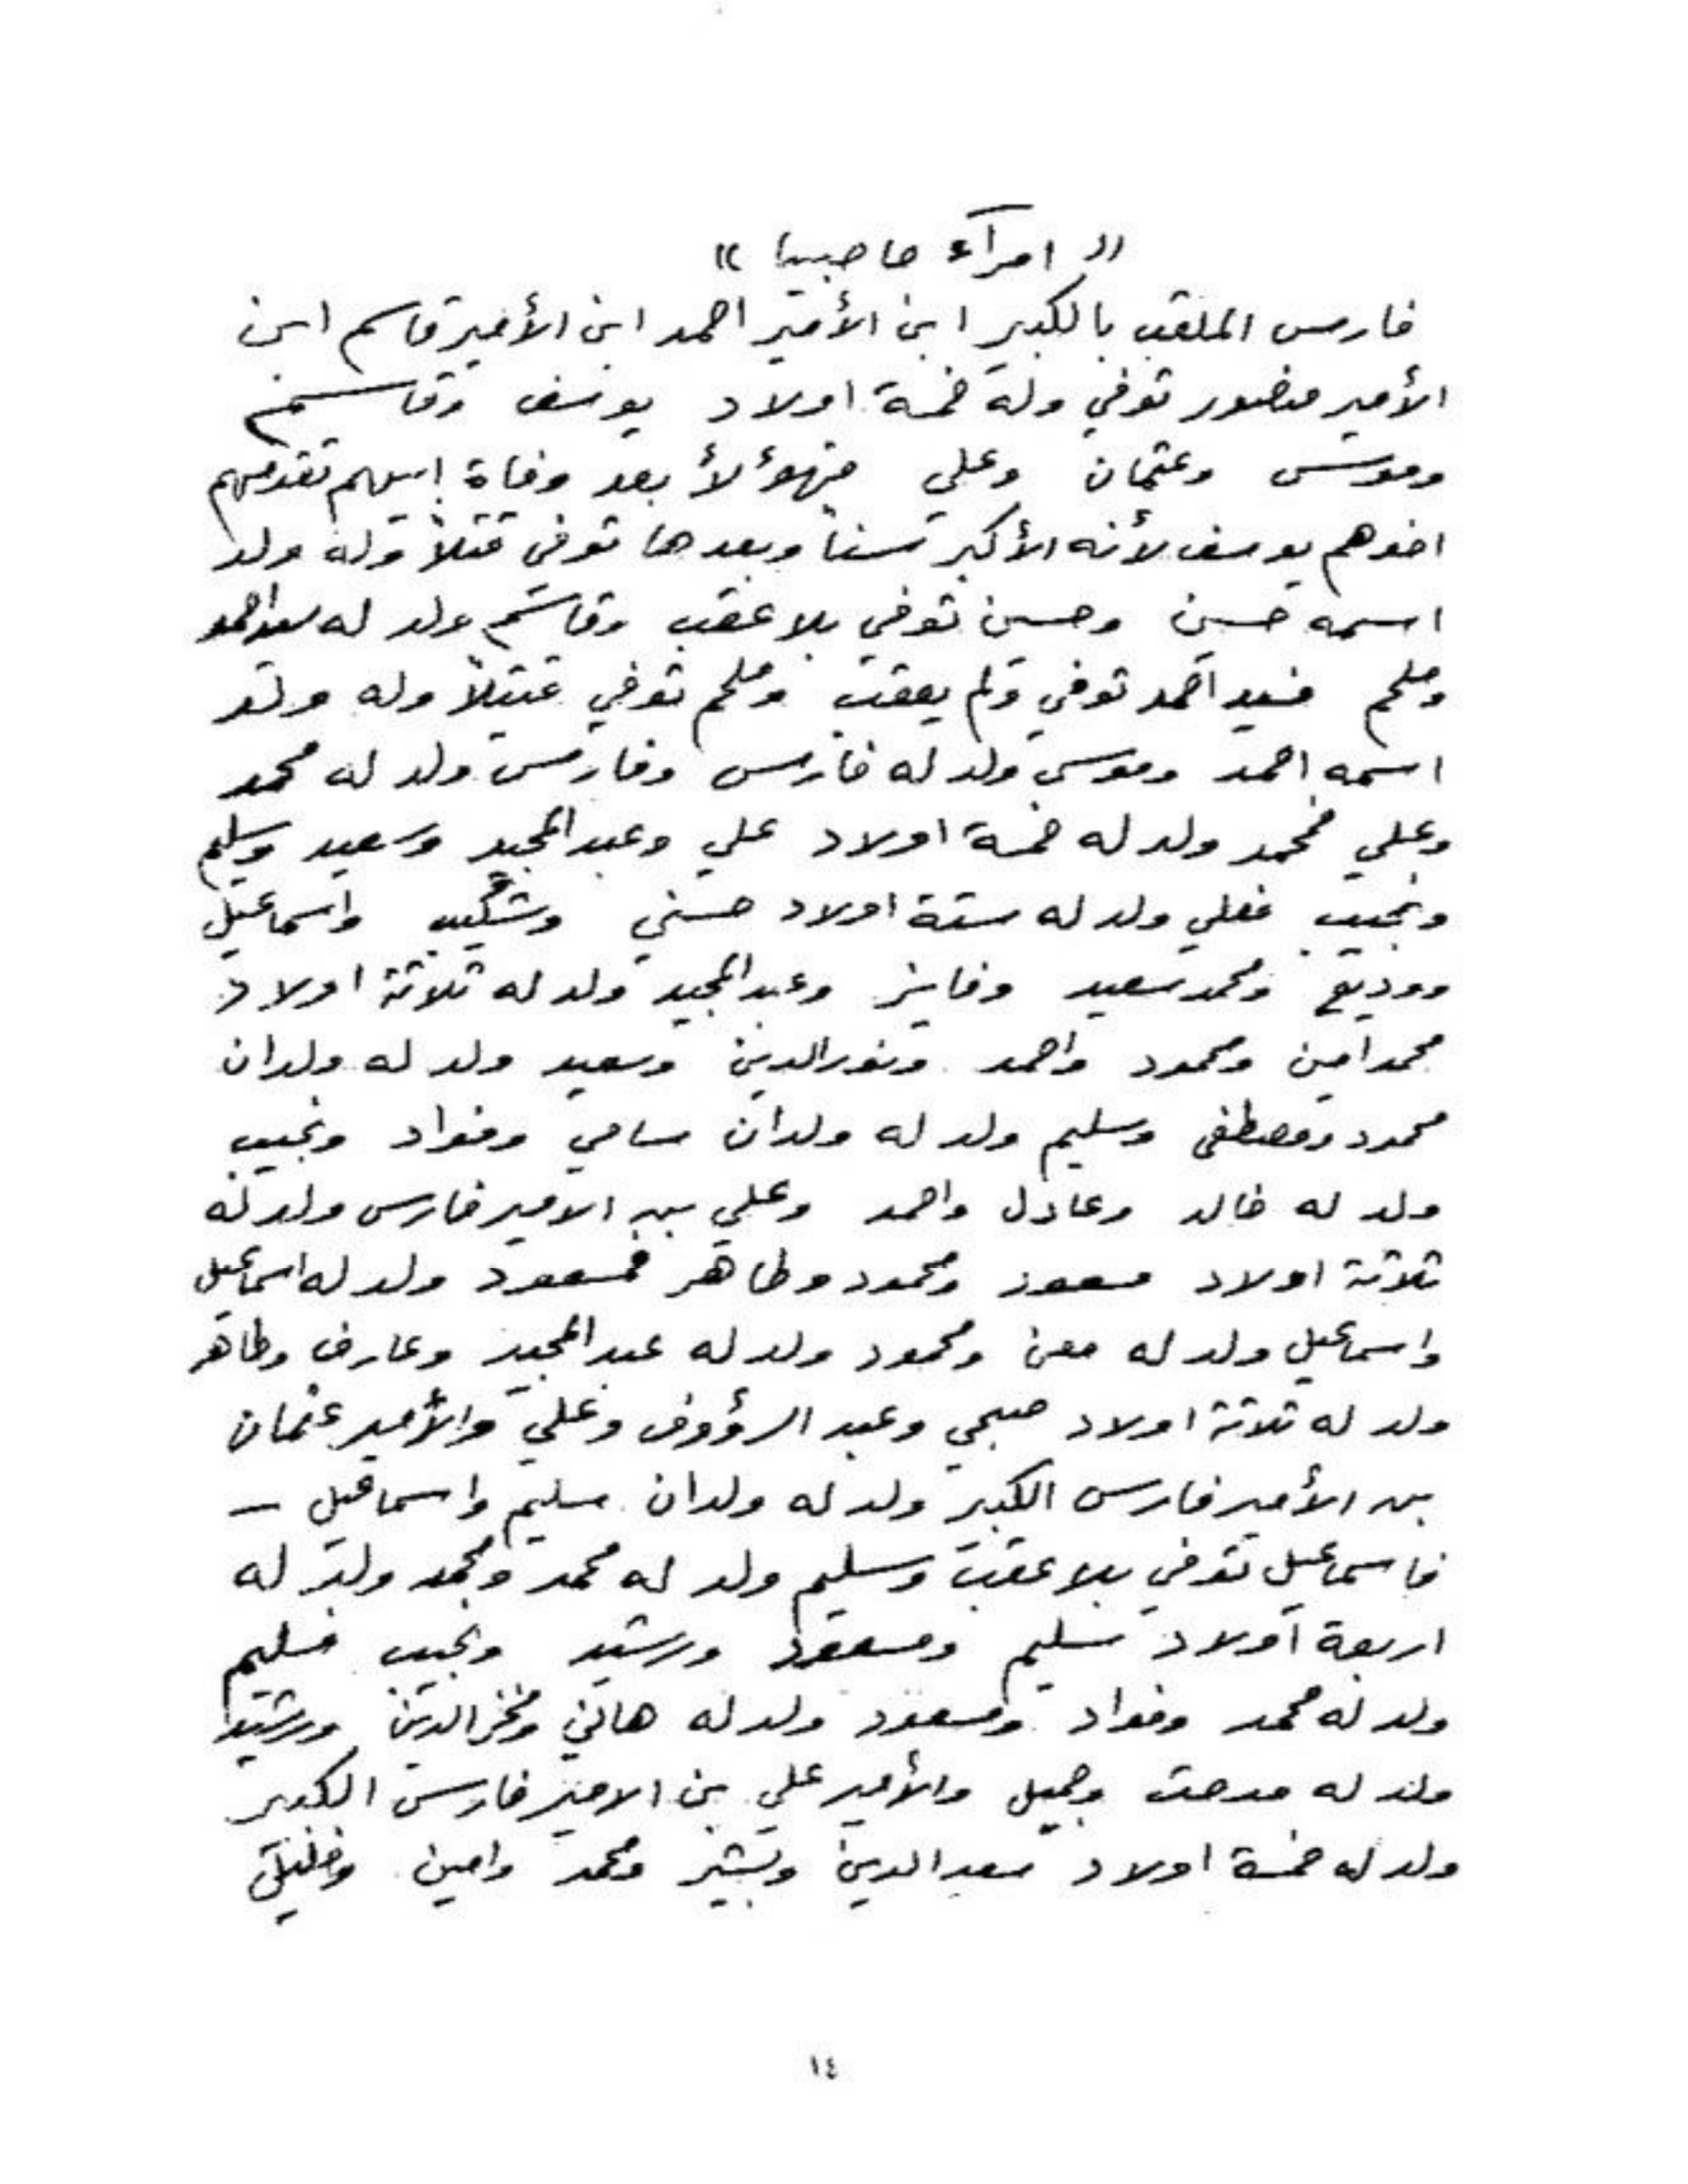 « امرآء حاصبيا »
فارس الملقب بالكبير ابن الأمير احمد ابن الأمير قاسم ابن
الأمير منصور توفي وله خمسة اولاد يوسف وقاسم
وموسى وعثمان وعلي فهؤلأ بعد وفاة ابيهم تقدمهم
اخوهم يوسف لأنه الأكبر سناً وبعدها توفي قتلاً وله ولد
اسمه حسين وحسين توفي بلا عقب وقاسم ولد له سيد احمد
وملحم فسيد احمد توفي ولم يعقب وملحم توفي قتيلاً وله ولد
اسمه احمد وموسى ولد له فارس وفارس ولد له محمد
وعلي فمحمد ولد له خمسة اولاد علي وعبد المجيد وسعيد وسليم
ونجيب فعلي ولد له ستة اولاد حسني وشكيب واسماعيل
ووديع ومحمد سعيد وفايز وعبد المجيد ولد له ثلاثة اولاد
محمد امين ومحمود واحمد ونور الدين وسعيد ولد له ولدان
محمود ومصطفى وسليم ولد له ولدان سامي وفواد ونجيب
ولد له خالد وعادل واحمد وعلي بن الامير فارس ولد له
ثلاثة اولاد مسعود ومحمود وطاهر فمسعود ولد له اسماعيل
واسماعيل ولد له معن ومحمود ولد له عبد المجيد وعارف وطاهر
ولد له ثلاثة اولاد صبحي وعبد الرؤوف وعلي والأمير عثمان
بن الأمير فارس الكبير ولد له ولدان سليم واسماعيل –
فاسماعيل توفي بلا عقب وسليم ولد له محمد ومحمد ولد له
اربعة اولاد سليم ومسعود ورشيد ونجيب فسليم
ولد له محمد وفواد ومسعود ولد له هاني وفخر الدين ورشيد
ولد له مدحت وجميل والأمير علي بن الامير فارس الكبير
ولد له خمسة اولاد سعد الدين وبشير ومحمد وامين وخليل
١٤